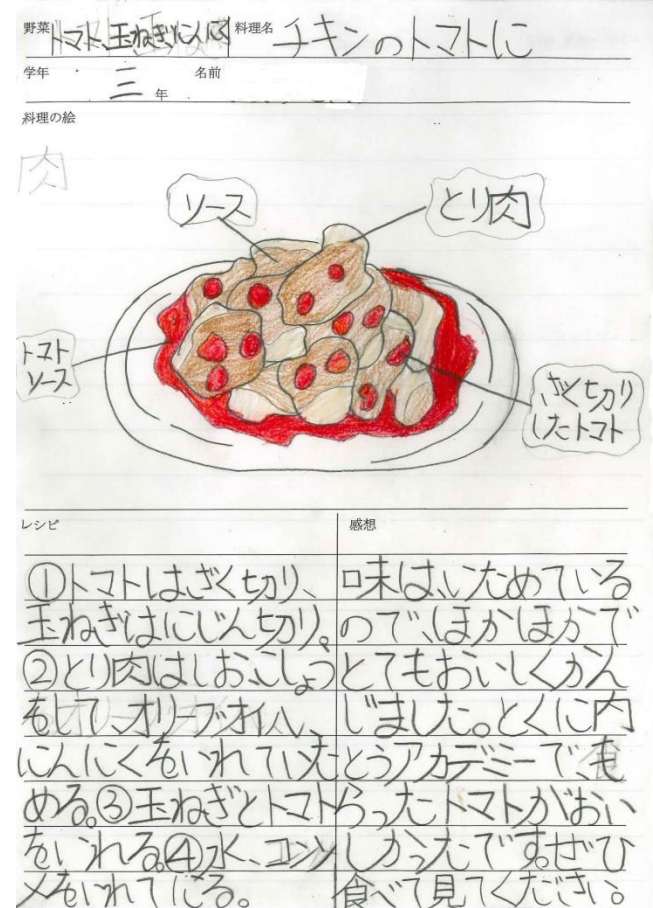 野菜 トマト、玉ねぎ、にんにく 料理名 チキンのトマトに
学年 三年 名前
料理の絵
肉
ソース
とり肉
トマト
ソース
ざく切り
したトマト
レシピ
①トマトはざく切り、
玉ねぎはにじん切り。
②とり肉はしおこしょう
をして、オリーブオイル、
にんにくをいれていた
める。③玉ねぎとトマト
をいれる。④水、コンソ
メをいれてにる。
感想
味は、いためている
ので、ほかほかで
とてもおいしくかん
じました。とくに内
とうアカデミーで、も
らったトマトがおい
しかったです。ぜひ
食べて見てください。